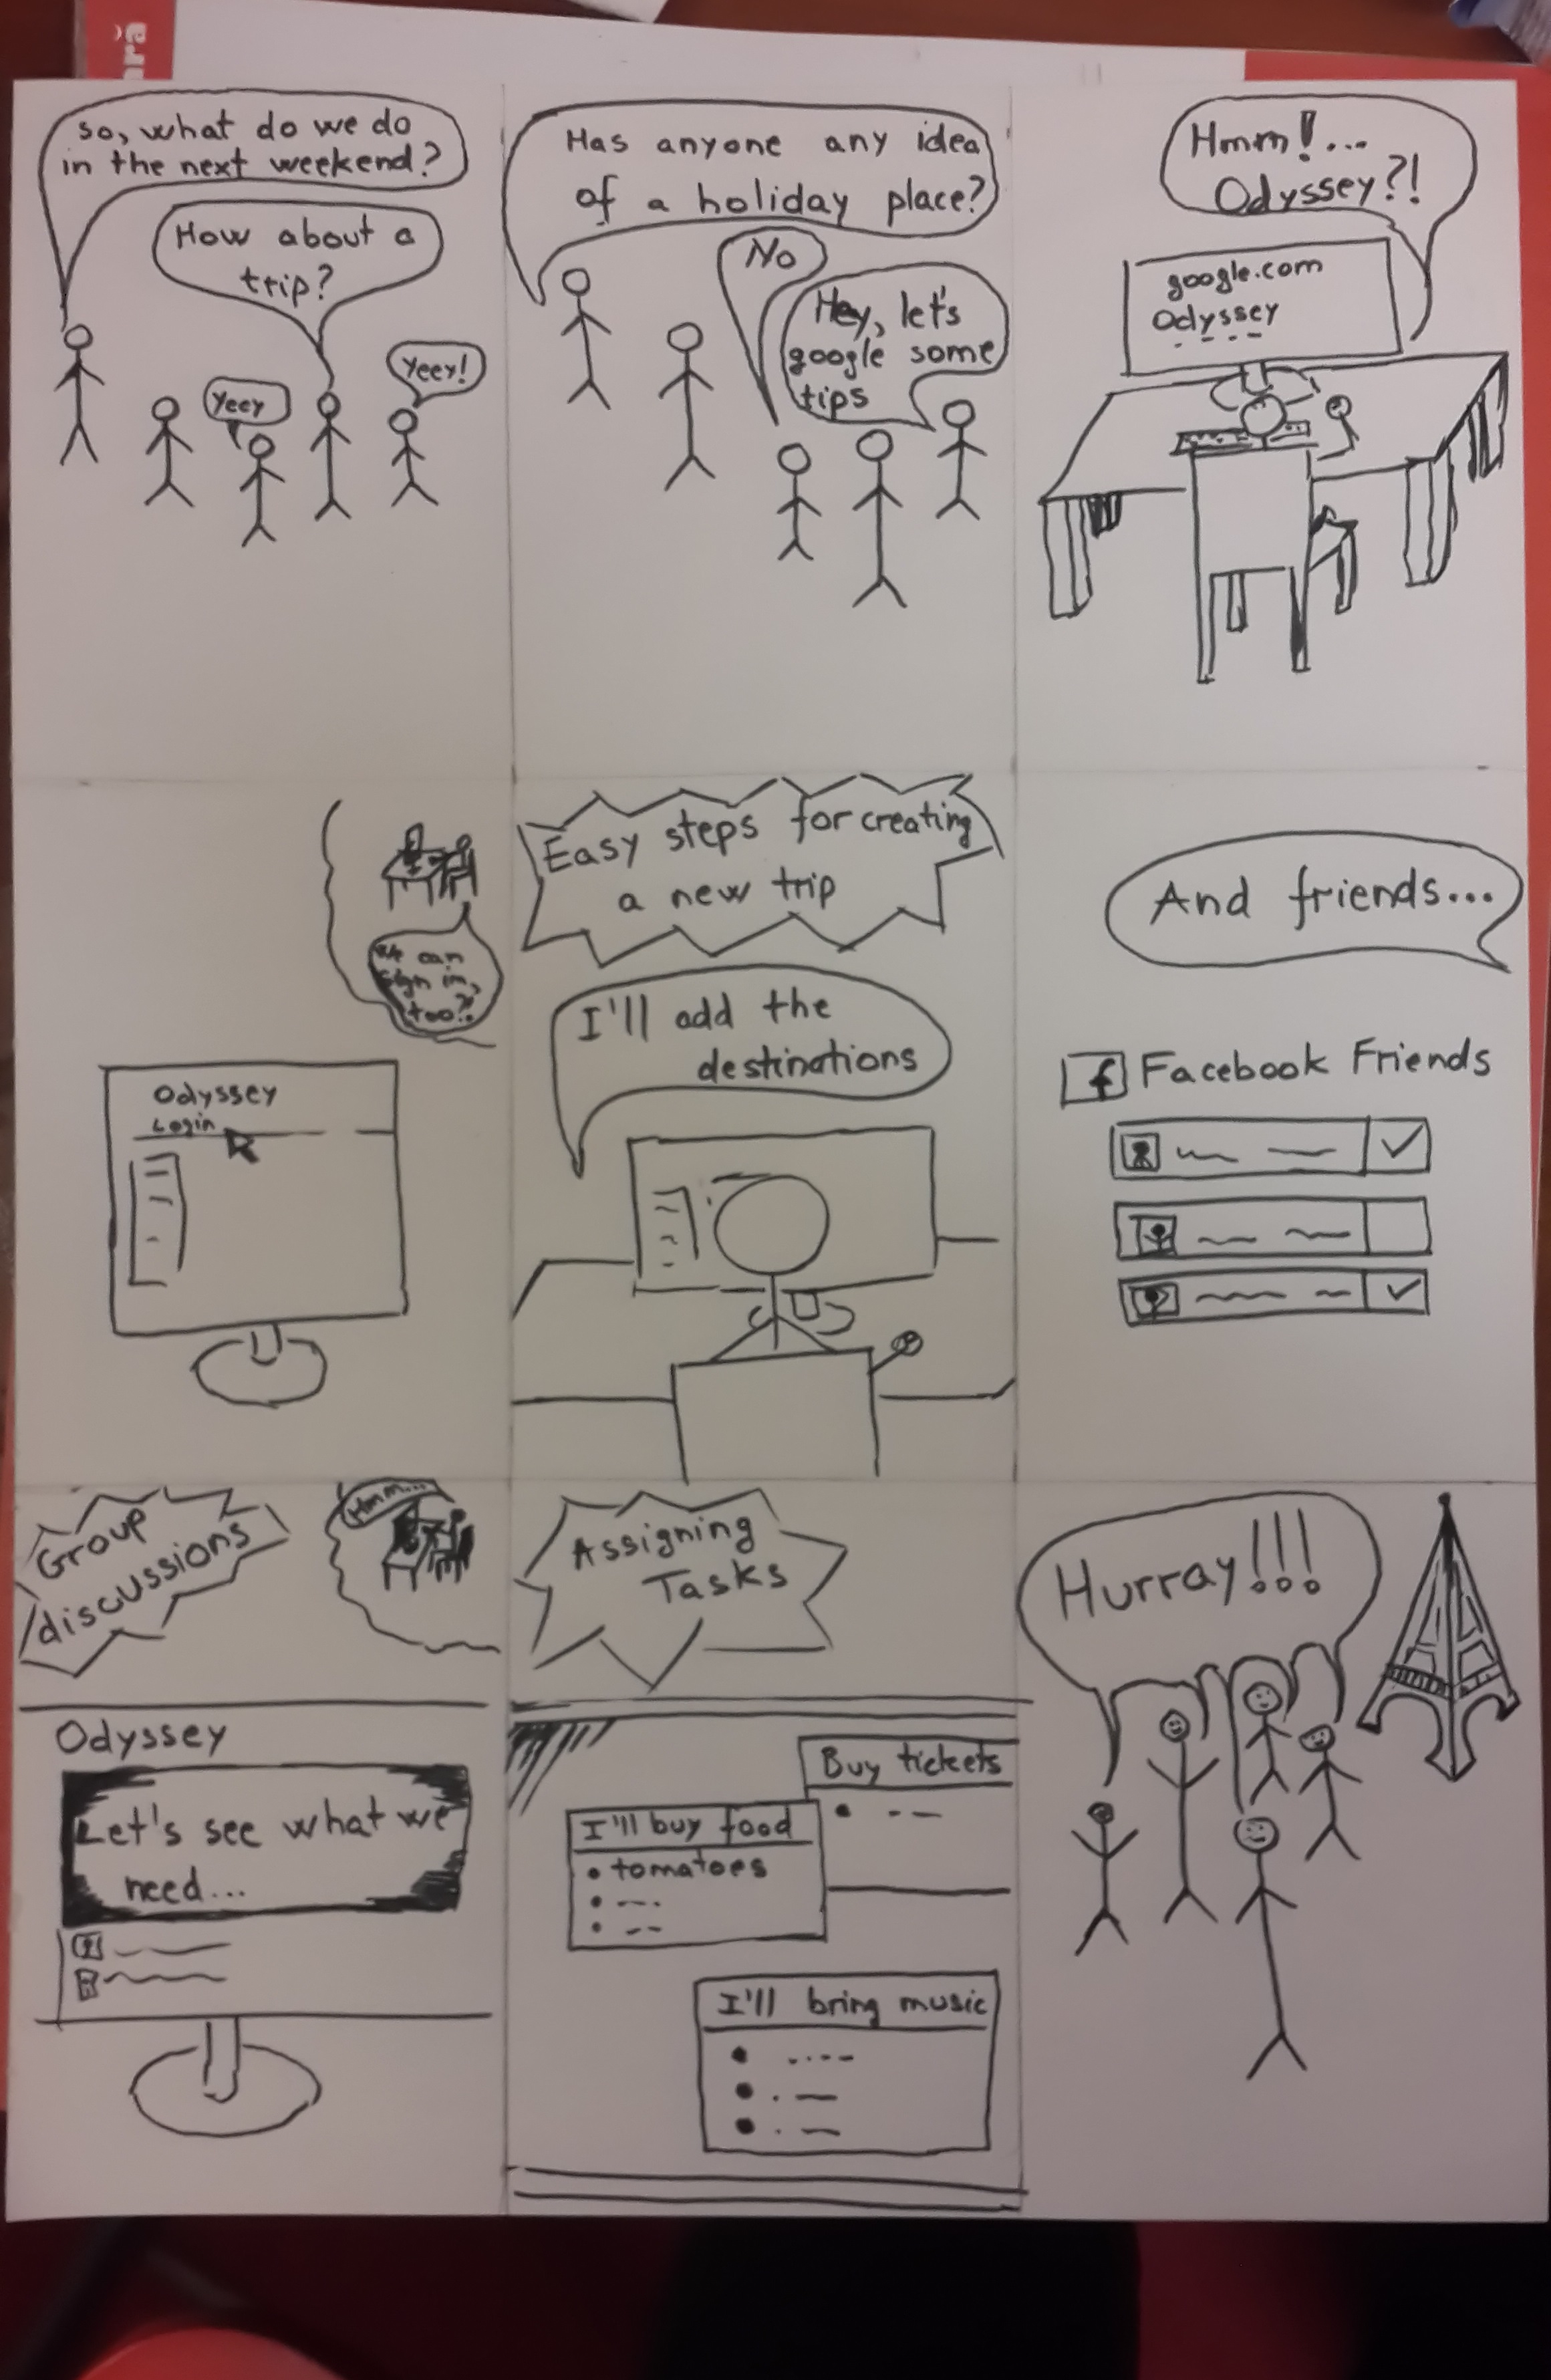 So, what do we do
in the next weekend?
How about a
trip?
Yeey
Yeey!
Has anyone any idea
of a holiday place?
No
Hey, let's
google some
tips
Hmm!...
Odyssey?!
google.com
Odyssey
can
sign in,
too?
Odyssey
Login
Easy steps for creating
a new trip
I'll add the
destinations
And friends...
f Facebook Friends
Group
discussions
Hmm...
Odyssey
Let's see what we
need...
Assigning
Tasks
Buy tickets
I'll buy food
• tomatoes
I'll bring music
Hurray!!!